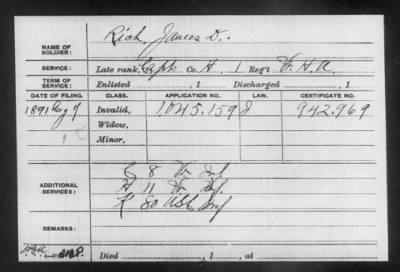 NAME OF SOLDIER: Rich, James D.
SERVICE: Late rank, Co. H, 1 Reg't
TERM OF SERVICE: Enlisted , 1 Discharged , 1
DATE OF FILING. CLASS. APPLICATION NO. LAW. CERTIFICATE NO.
1891 Aug 7 Invalid, 1045.159 942.969
Widow,
Minor,
ADDITIONAL SERVICES: G 8 Inf
H 11 Inf
K 80 Inf
REMARKS:
Died , 1 , at